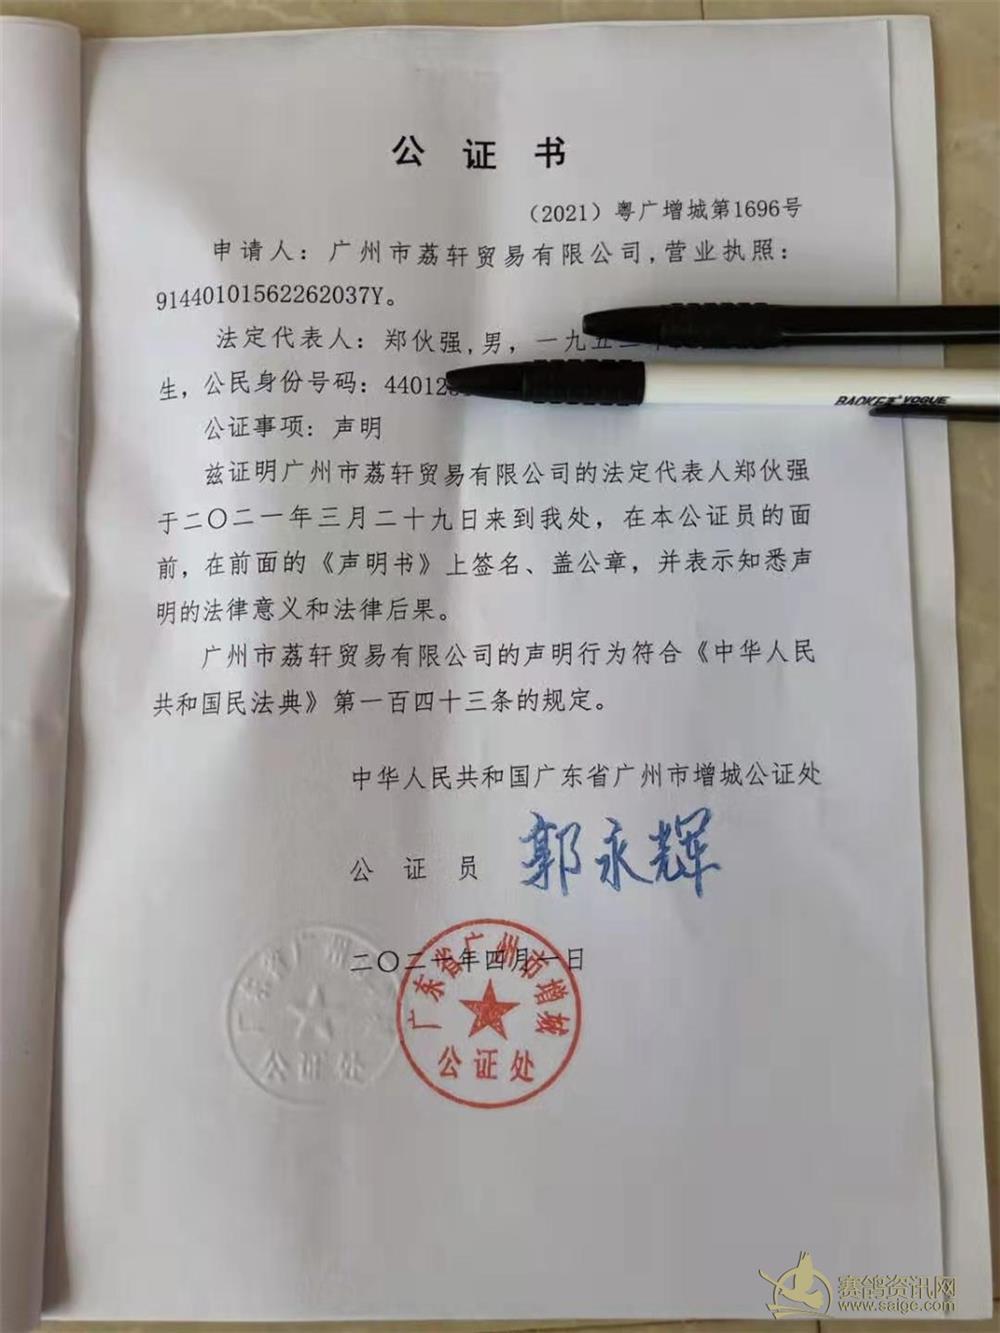 公 证 书
（2021）粤广增城第1696号
申请人：广州市荔轩贸易有限公司,营业执照：
91440101562262037Y。
法定代表人：郑伙强,男，一九五
生，公民身份号码：44012
公证事项：声明
兹证明广州市荔轩贸易有限公司的法定代表人郑伙强
于二〇二一年三月二十九日来到我处，在本公证员的面
前，在前面的《声明书》上签名、盖公章，并表示知悉声
明的法律意义和法律后果。
广州市荔轩贸易有限公司的声明行为符合《中华人民
共和国民法典》第一百四十三条的规定。
中华人民共和国广东省广州市增城公证处
公 证 员 郭永辉
二〇二一年四月一日
广东省广州市增城
公证处
广东省广州
公证处
BAOKE 宝克 VOGUE
赛鸽资讯网
www.saigc.com